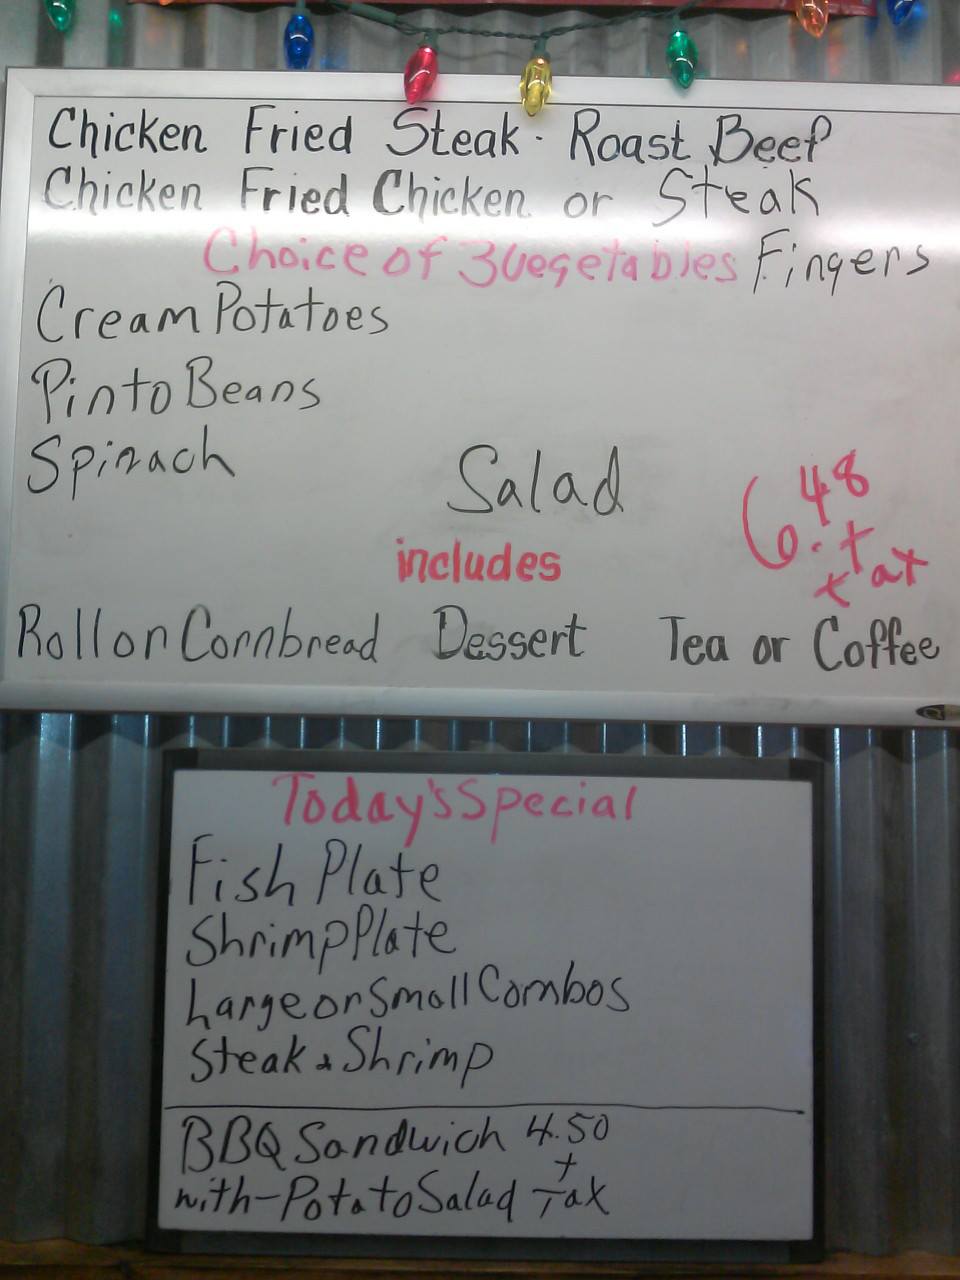 Chicken Fried Steak · Roast Beef
Chicken Fried Chicken or Steak
Choice of 3 Vegetables Fingers
Cream Potatoes
Pinto Beans
Spinach
Salad
6.48
+ tax
includes
Roll or Cornbread Dessert Tea or Coffee
Today's Special
Fish Plate
Shrimp Plate
Large or Small Combos
Steak & Shrimp
BBQ Sandwich 4.50
with - Potato Salad + Tax